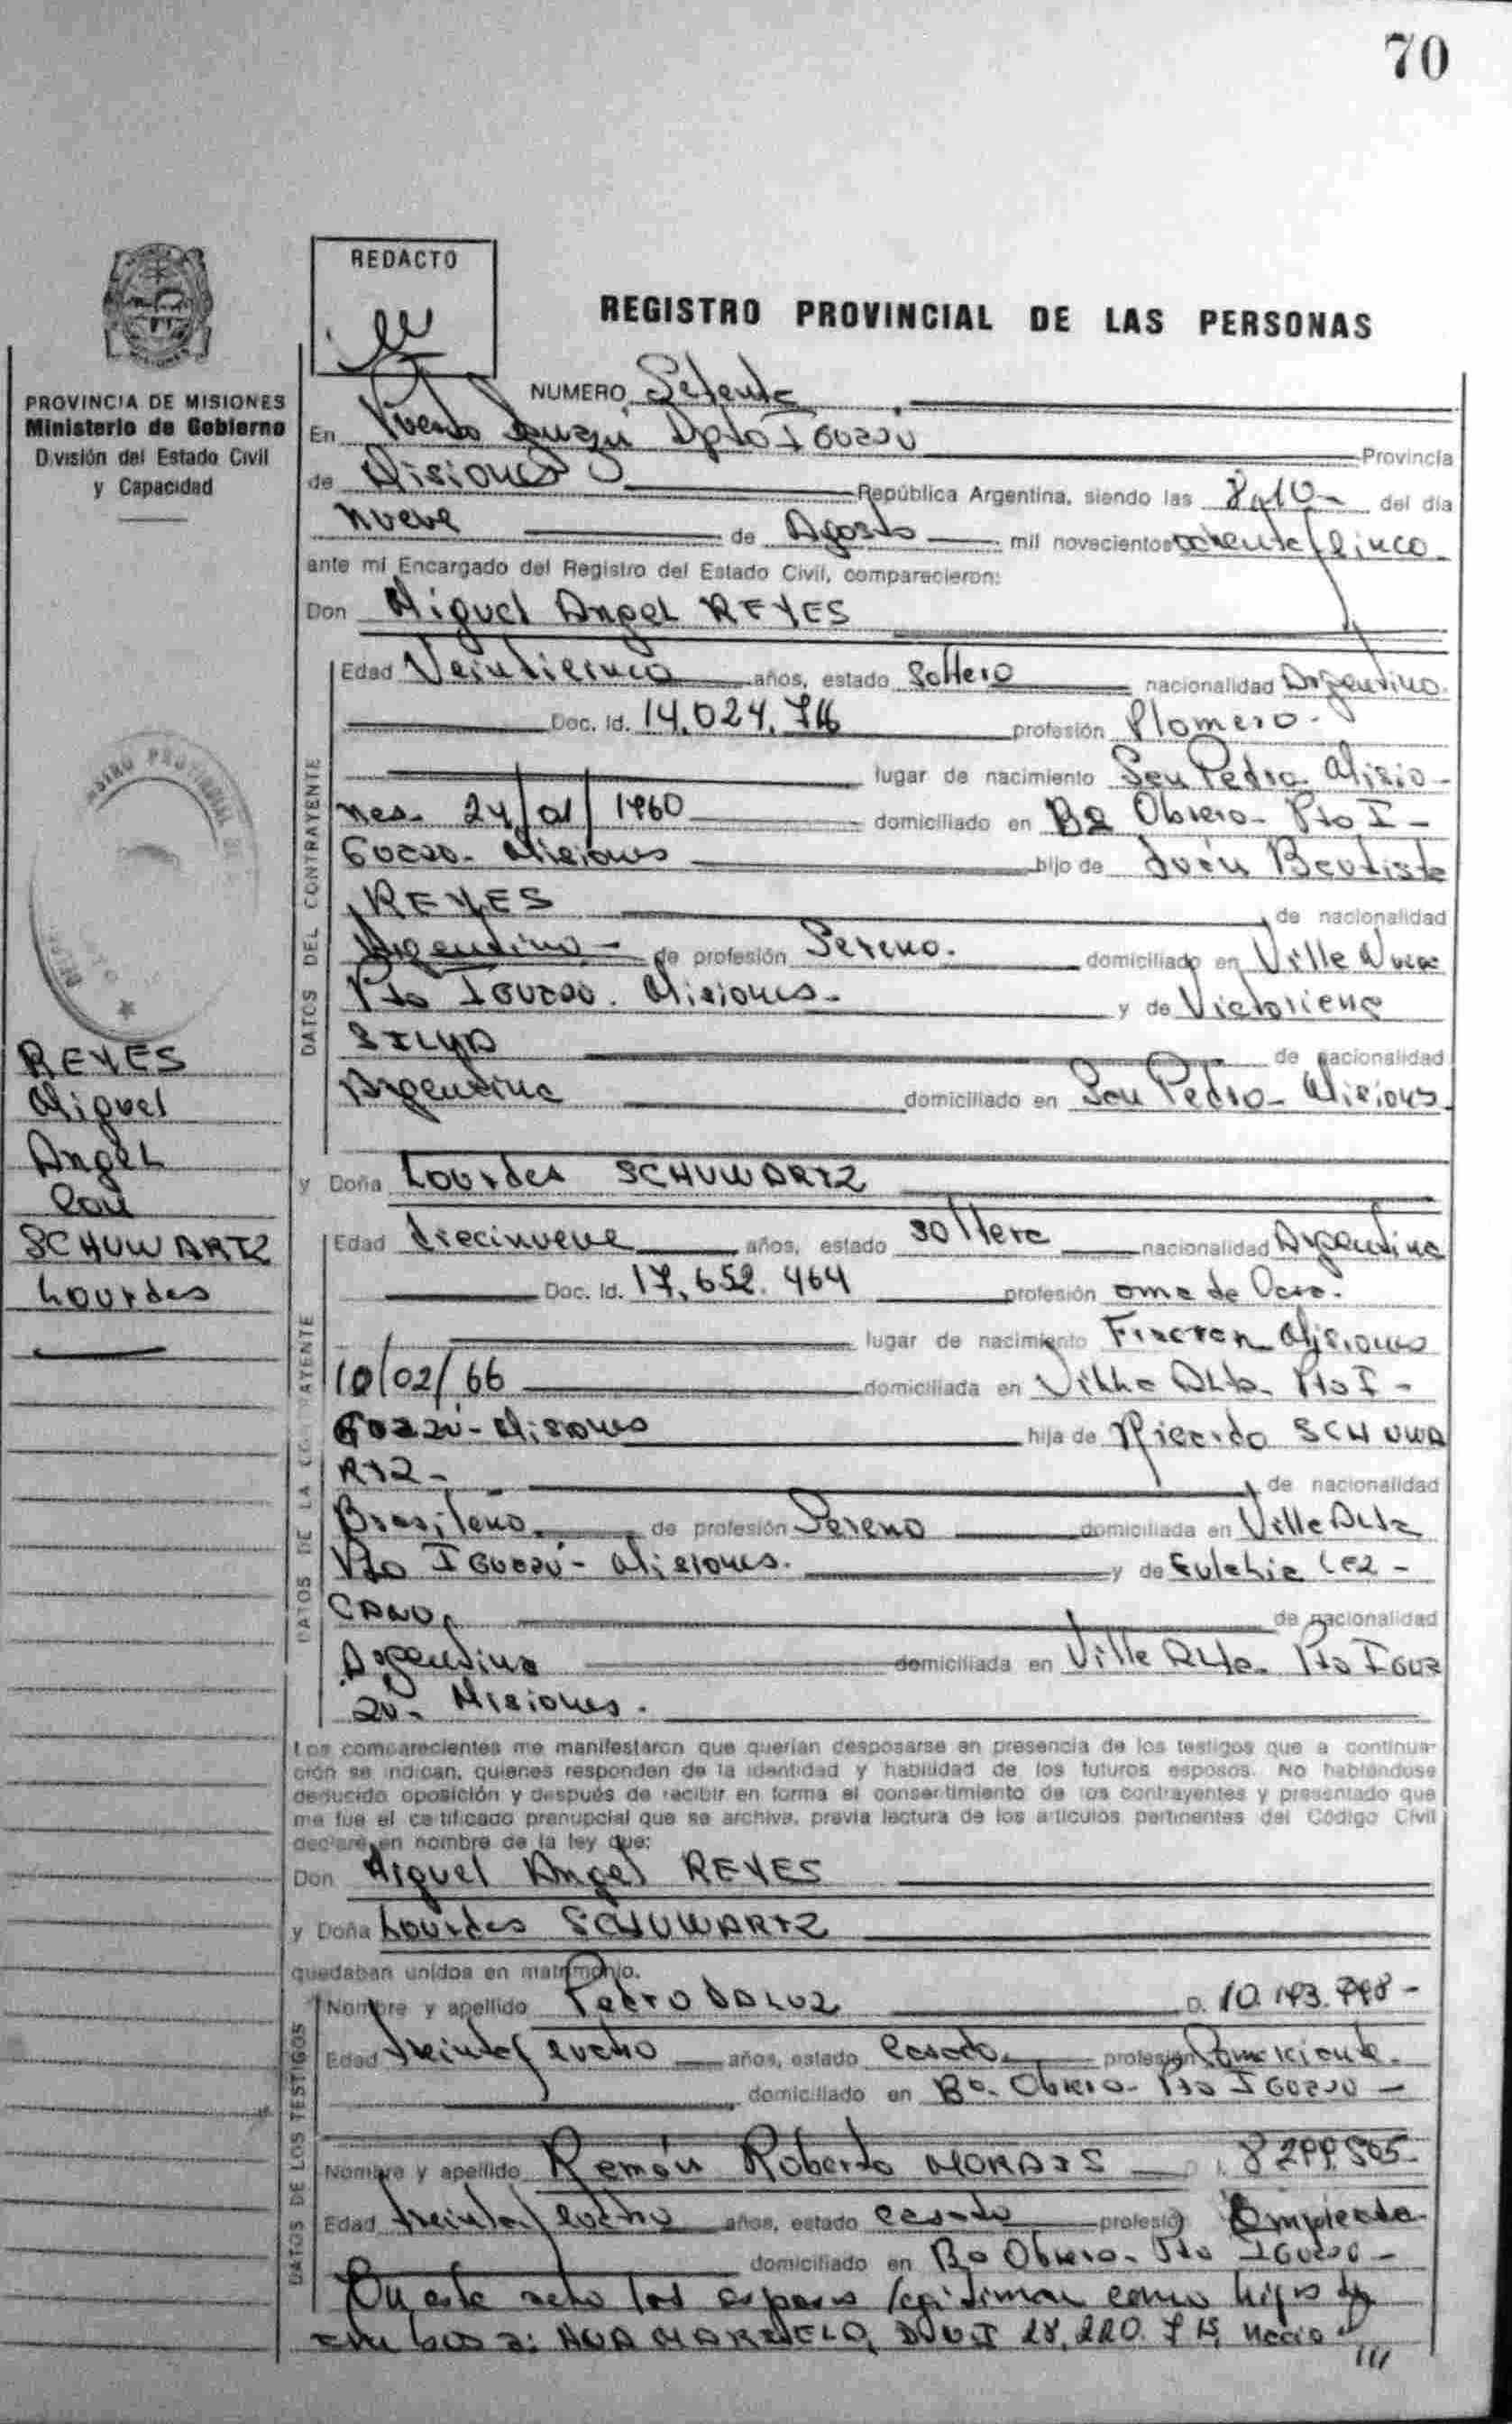 70
REDACTO
REGISTRO PROVINCIAL DE LAS PERSONAS
PROVINCIA DE MISIONES
Ministerio de Gobierno
División del Estado Civil
y Capacidad
NUMERO Setenta
En Puerto Iguazú Dpto IGUAZU Provincia
de Misiones República Argentina, siendo las 8,10 del día
nueve de Agosto mil novecientos ochenta y cinco
ante mí Encargado del Registro del Estado Civil, comparecieron:
Don Miguel Angel REYES
DATOS DEL CONTRAYENTE
Edad Veinticinco años, estado Soltero nacionalidad Argentino
Doc. Id. profesión Plomero-
lugar de nacimiento San Pedro Misio-
nes. 24/01/1960 domiciliado en Bº Obrero- Pto I-
Guazu- Misiones hijo de Juan Bautista
REYES de nacionalidad
Argentino- de profesión Sereno. domiciliado en Villa Nueva
Pto IGUAZU. Misiones- y de Victoriana
SILVA de nacionalidad
Argentina domiciliado en San Pedro- Misiones
REYES
Miguel
Angel
Con
SCHUWARTZ
Lourdes
y Doña Lourdes SCHUWARTZ
DATOS DE LA CONTRAYENTE
Edad diecinueve años, estado soltera nacionalidad Argentina
Doc. Id. 17.652.464 profesión ama de Casa.
lugar de nacimiento Misiones
10/02/66 domiciliada en Villa Alta- Pto I-
Guazú- Misiones hija de Ricardo SCHUWA
RTZ- de nacionalidad
Brasileño de profesión Sereno domiciliada en Villa Alta
Pto IGUAZÚ- Misiones. y de Lez-
CANO, de nacionalidad
Argentina domiciliada en Villa Alta- Pto IGUA
zu- Misiones.
Los comparecientes me manifestaron que querían desposarse en presencia de los testigos que a continua-
ción se indican, quienes responden de la identidad y habilidad de los futuros esposos. No habiéndose
deducido oposición y después de recibir en forma el consertimiento de los contrayentes y presentado que
me fue el certificado prenupcial que se archiva, previa lectura de los artículos pertinentes del Código Civil
declaré en nombre de la ley que:
Don Miguel Angel REYES
y Doña Lourdes SCHUWARTZ
quedaban unidos en matrimonio.
DATOS DE LOS TESTIGOS
Nombre y apellido Pedro DALUZ D.
Edad treinta y ocho años, estado Casado profesión Comerciante
domiciliado en Bº. Obrero- Pto IGUAZU-
Nombre y apellido Ramón Roberto MORAIS
Edad treinta y ocho años, estado casado profesió Empleado
domiciliado en Bº Obrero- Pto IGUAZU-
En este acto los esposos legitiman como hijos de
ambos a: ANA MARICELA, D.N.I 28.220.715, Nacio
///